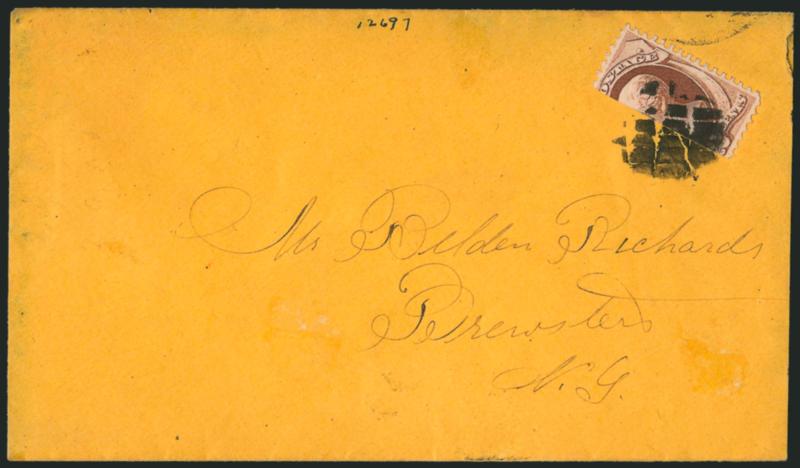 12697
Mr Belden Richards
Brewsters
N.Y.